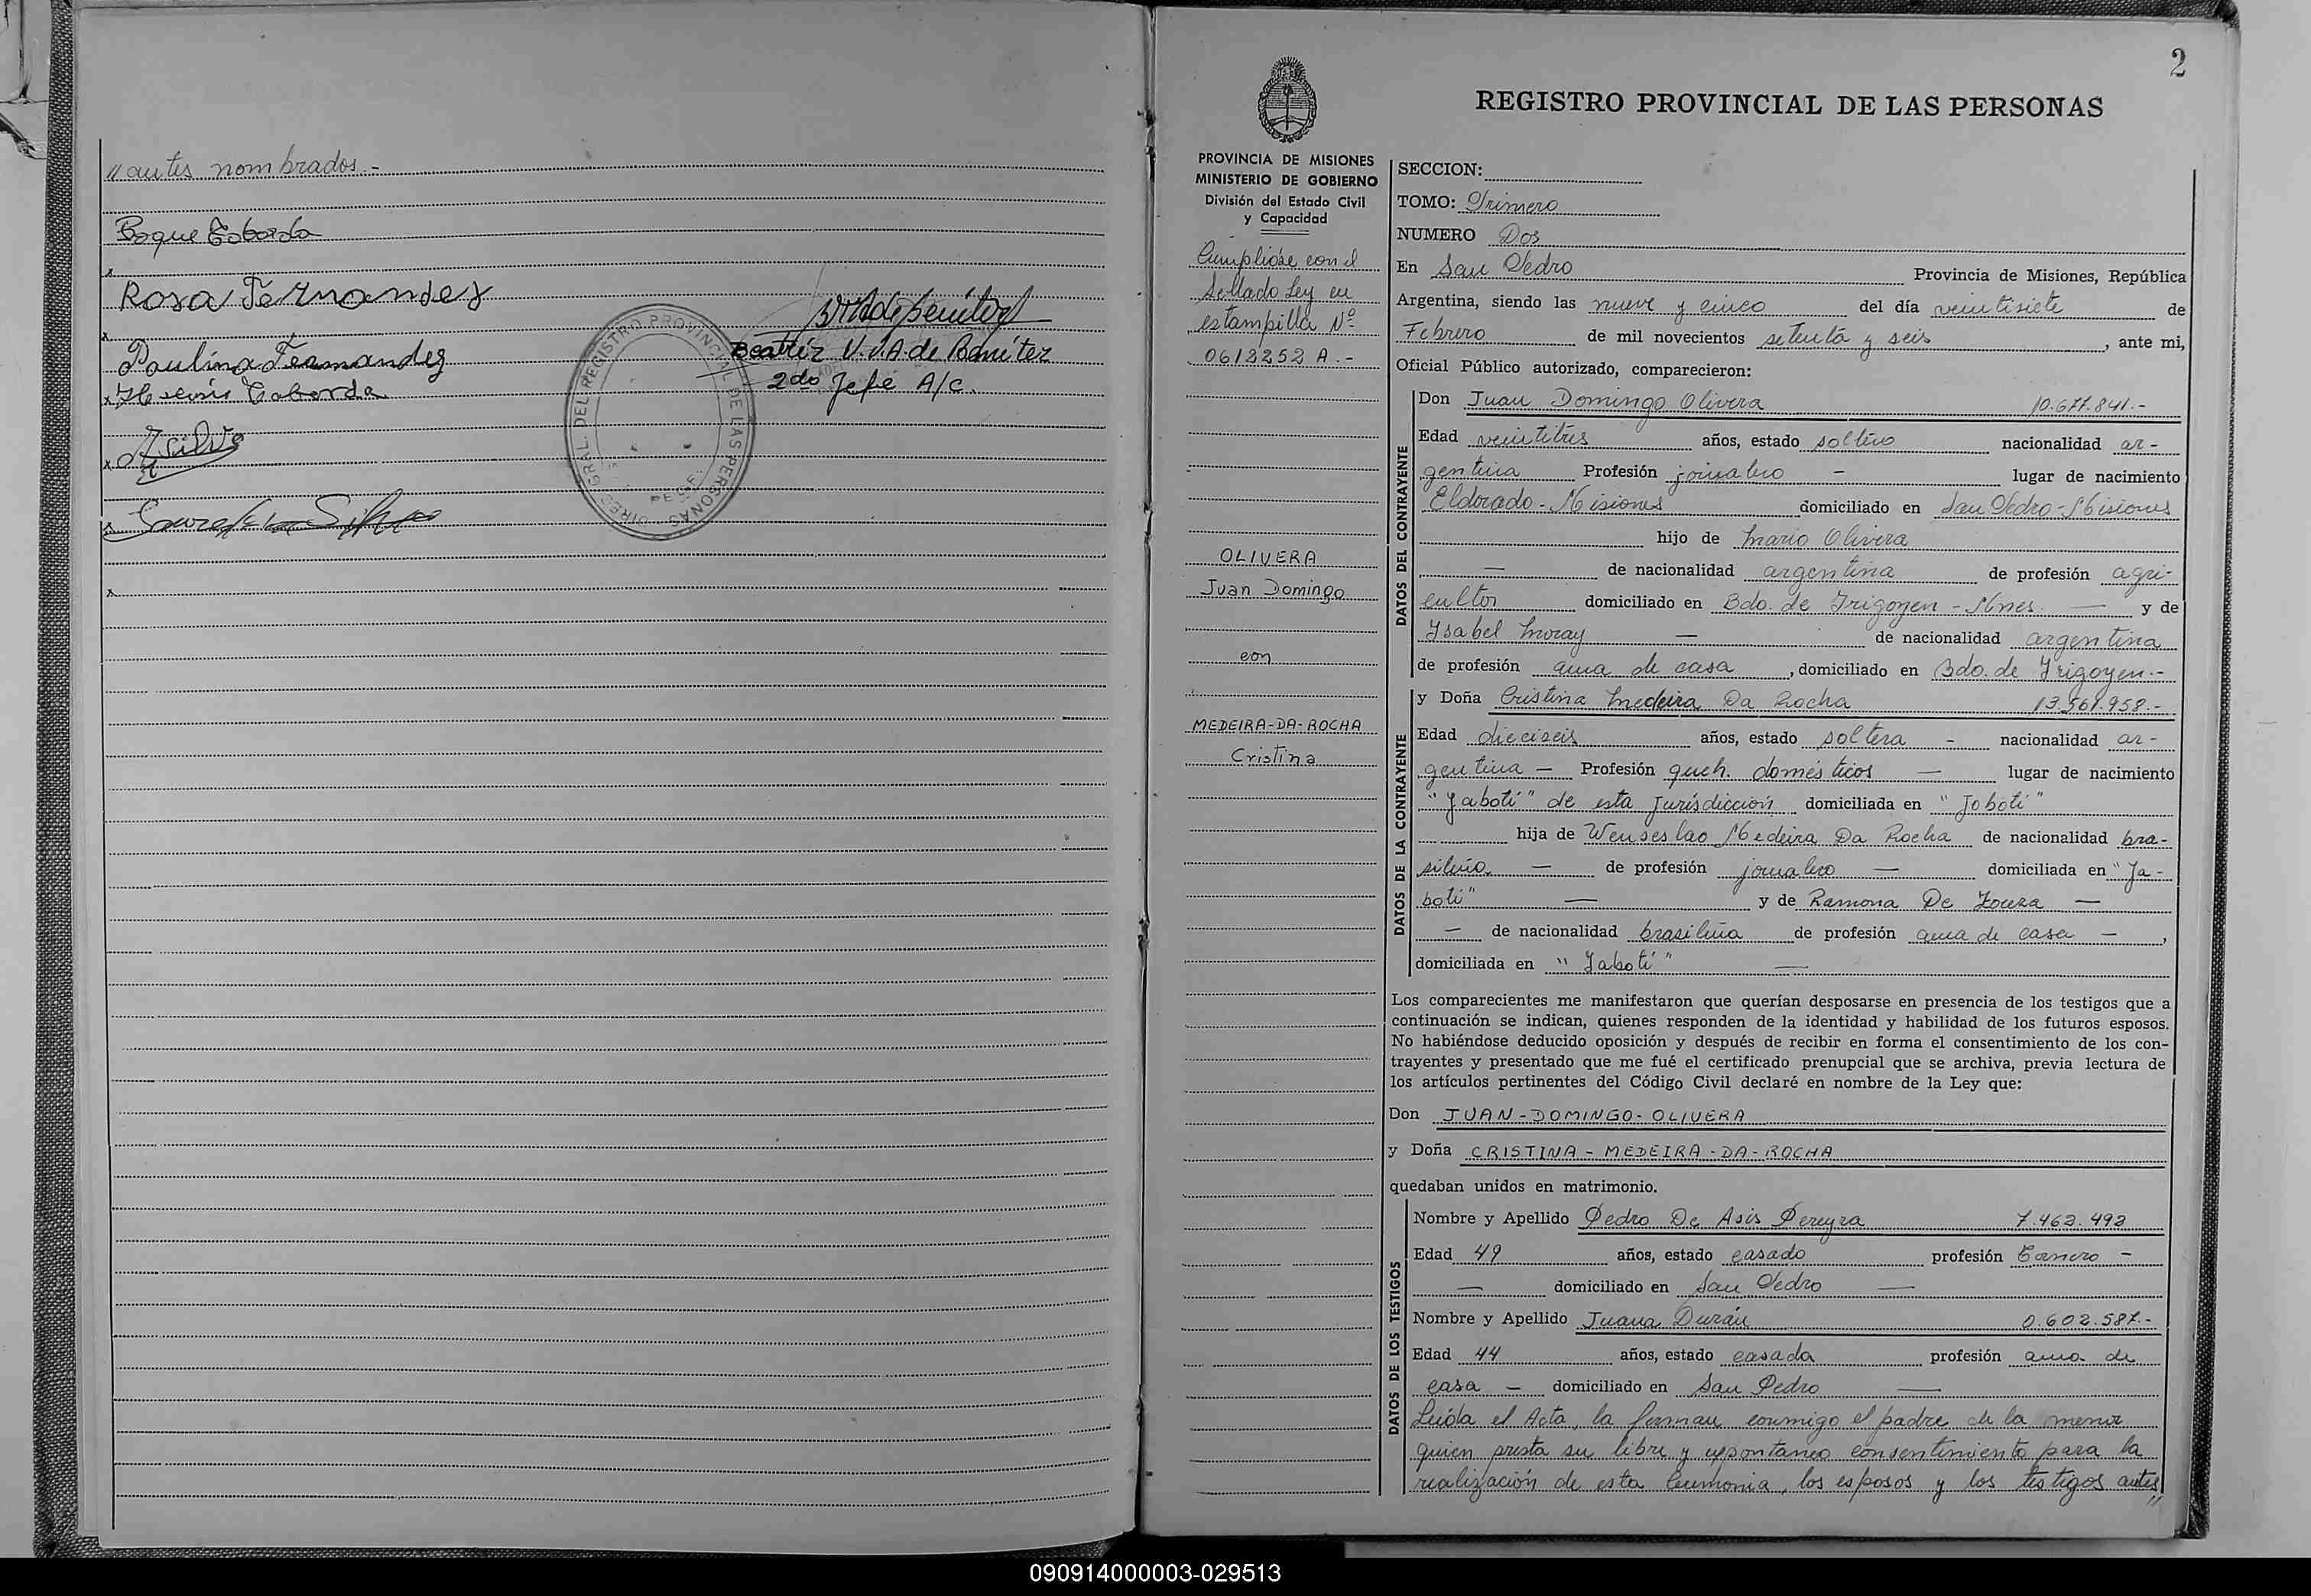 "antes nombrados.-
Roque Taborda
x
Rosa Fernandez
x
Paulina Fernandez
x Taborda
x Silva
x Silva
x
Beatriz V. V. A. de Benitez
2do Jefe A/c.
DIREC. GRAL. DEL REGISTRO PROVINCIAL DE LAS PERSONAS
2
REGISTRO PROVINCIAL DE LAS PERSONAS
PROVINCIA DE MISIONES
MINISTERIO DE GOBIERNO
División del Estado Civil
y Capacidad
Cumplióse con el
Sellado Ley en
estampilla Nº
0612252 A.-
OLIVERA
Juan Domingo
con
MEDEIRA-DA-ROCHA
Cristina
SECCION:
TOMO: Primero
NUMERO Dos
En San Pedro Provincia de Misiones, República
Argentina, siendo las nueve y cinco del día veintisiete de
Febrero de mil novecientos setenta y seis, ante mi,
Oficial Público autorizado, comparecieron:
DATOS DEL CONTRAYENTE
Don Juan Domingo Olivera 10.677.841.-
Edad veintitrés años, estado soltero nacionalidad ar-
gentina Profesión jornalero - lugar de nacimiento
Eldorado - Misiones domiciliado en San Pedro-Misiones
hijo de Mario Olivera
— de nacionalidad argentina de profesión agri-
cultor domiciliado en Bdo. de Irigoyen - Mnes. — y de
Ysabel Moray — de nacionalidad argentina
de profesión ama de casa, domiciliado en Bdo. de Yrigoyen.-
DATOS DE LA CONTRAYENTE
y Doña Cristina Medeira Da Rocha 13.561.958.-
Edad dieciseis años, estado soltera - nacionalidad ar-
gentina — Profesión queh. domésticos — lugar de nacimiento
"Yabotí" de esta Jurisdicción domiciliada en "Jaboti"
hija de Wenseslao Medeira Da Rocha de nacionalidad bra-
sileño. — de profesión jornalero — domiciliada en "Ja-
boti" — y de Ramona De Souza —
— de nacionalidad brasileña de profesión ama de casa —,
domiciliada en "Yaboti" —
Los comparecientes me manifestaron que querían desposarse en presencia de los testigos que a
continuación se indican, quienes responden de la identidad y habilidad de los futuros esposos.
No habiéndose deducido oposición y después de recibir en forma el consentimiento de los con-
trayentes y presentado que me fué el certificado prenupcial que se archiva, previa lectura de
los artículos pertinentes del Código Civil declaré en nombre de la Ley que:
Don JUAN-DOMINGO-OLIVERA
y Doña CRISTINA-MEDEIRA-DA-ROCHA
quedaban unidos en matrimonio.
DATOS DE LOS TESTIGOS
Nombre y Apellido Pedro De Asis Pereyra 7.462.492
Edad 49 años, estado casado profesión Tornero -
— domiciliado en San Pedro —
Nombre y Apellido Juana Durán 0.602.587.-
Edad 44 años, estado casada profesión ama de
casa — domiciliado en San Pedro —
Leída el Acta, la forman conmigo el padre de la menor
quien presta su libre y espontaneo consentimiento para la
realización de esta Ceremonia, los esposos y los testigos antes"
090914000003-029513